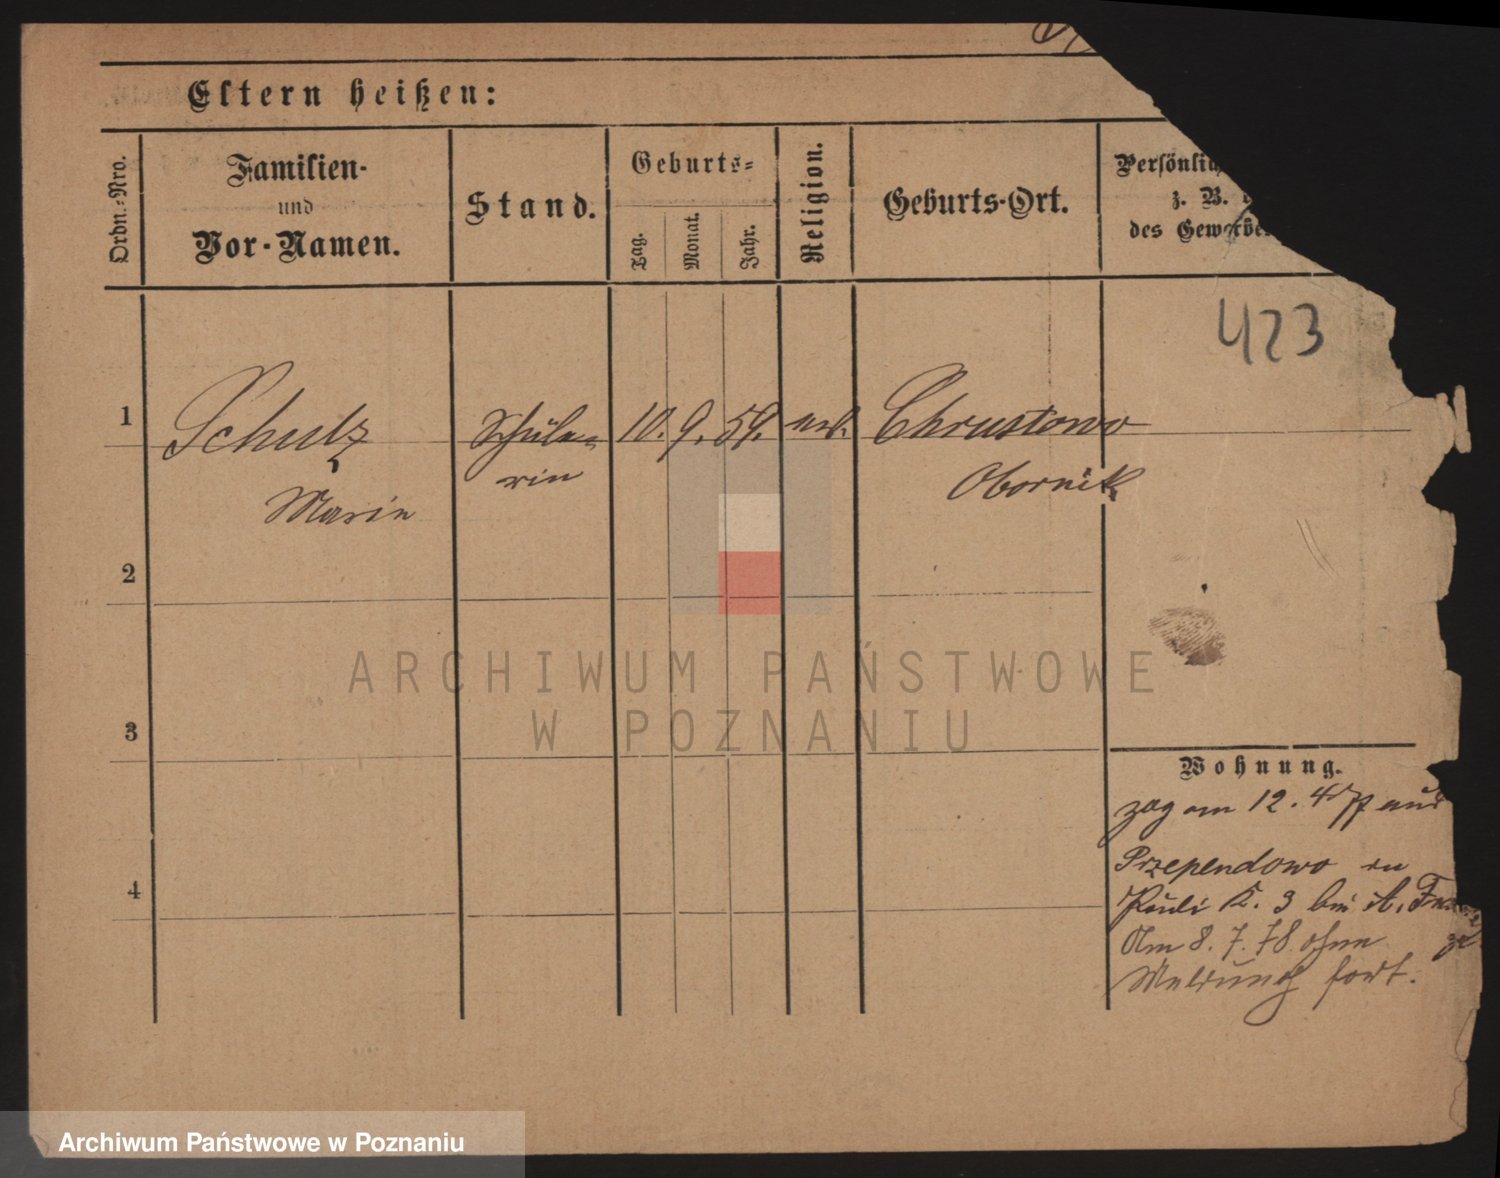 Eltern heißen:
Ordn.-Nro.
Familien-
und
Vor-Namen.
Stand.
Geburts-
Tag.
Monat.
Jahr.
Religion.
Geburts-Ort.
Persönlich
z. B.
des Gewerbe
423
1
Schulz
Marie
Schüle-
rin
10. 9. 59.
Chrustowo
Obornik
2
3
4
Wohnung.
zog am 12. aus
Przependowo in
K. 3 bei A.
Am 8. 7. 78 ohne
Meldung fort.
ARCHIWUM PAŃSTWOWE
W POZNANIU
Archiwum Państwowe w Poznaniu